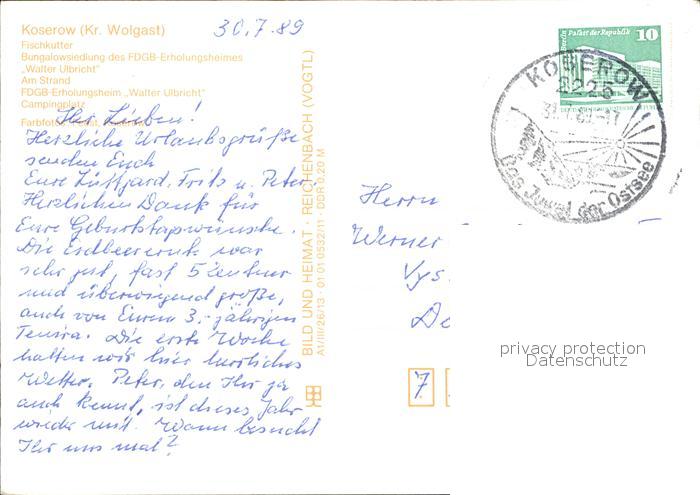 Koserow (Kr. Wolgast)
30.7.89
Fischkutter
Bungalowsiedlung des FDGB-Erholungsheimes
„Walter Ulbricht"
Am Strand
FDGB-Erholungsheim „Walter Ulbricht"
Campingplatz
Farbfotos
Ihr Lieben!
Herzliche Urlaubsgrüße
senden Euch
Eure Fritz u. Peter.
Herzlichen Dank für
Eure Geburtstagswünsche.
Die Erdbeerernte war
sehr gut, fast 5 Zentner
und überwiegend große,
auch von Euren 3-jährigen
Die erste Woche
hatten wir hier herrliches
Wetter. Peter, den Ihr ja
auch kennt, ist dieses Jahr
wieder mit. Wann besucht
Ihr uns mal?
BILD UND HEIMAT · REICHENBACH (VOGTL)
A1/III/26/13 · 01 01 0532/11 · DDR 0,20 M
Berlin Palast der Republik
10
KOSEROW
2225
Das Juwel der Ostsee
Herrn
Werner
7
privacy protection
Datenschutz